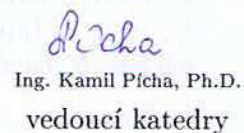 Pícha
Ing. Kamil Pícha, Ph.D.
vedoucí katedry